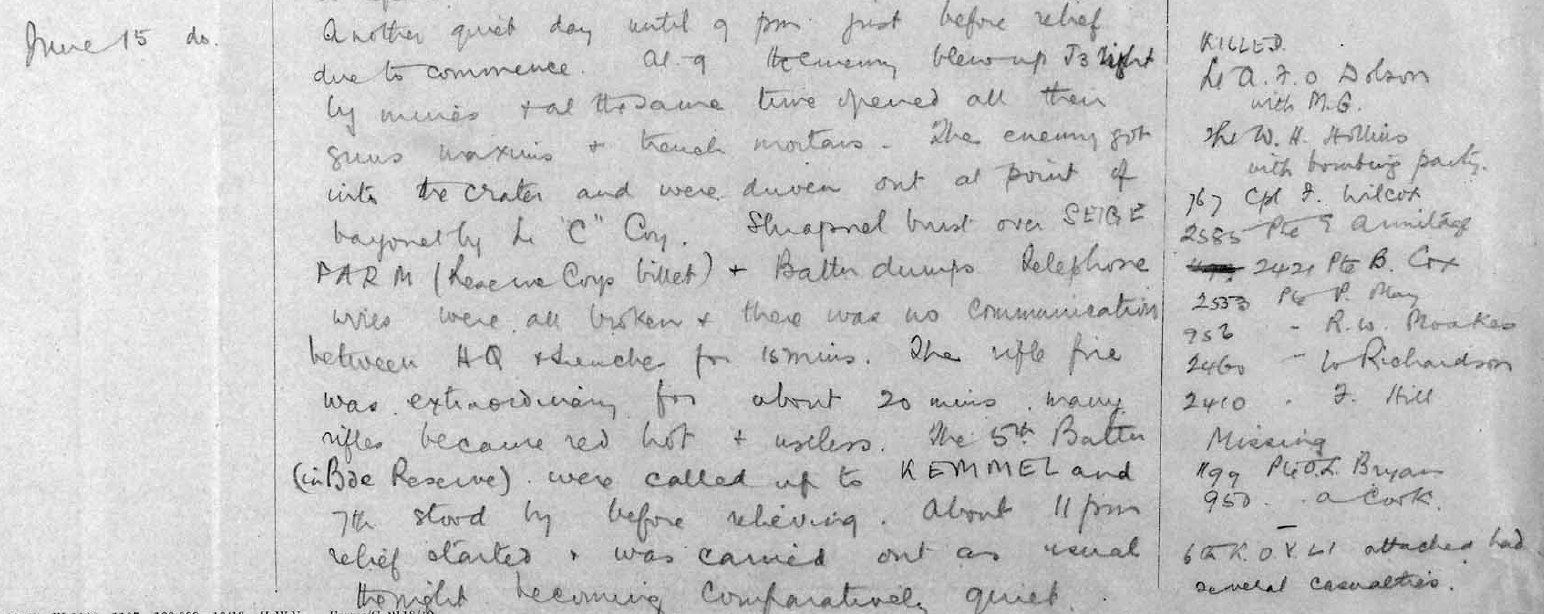 June 15 do.
Another quiet day until 9 pm just before relief
due to commence. At 9 the enemy blew up J3 right
by mines + at the same time opened all their
guns maxims + trench mortars. The enemy got
into the crater and were driven out at point of
bayonet by "C" Coy. Shrapnel burst over SEIGE
FARM (Reserve Coys billet) + Battn dumps Telephone
wires were all broken + there was no communication
between HQ + trenches for 15 mins. The rifle fire
was extraordinary for about 20 mins many
rifles became red hot + useless. The 5th Battn
(in Bde Reserve) were called up to KEMMEL and
7th stood by before relieving. About 11 pm
relief started + was carried out as usual
the night becoming comparatively quiet.
KILLED.
Lt A. F. O Dobson
with M.G.
W. H. Hollins
with bombing party.
767 Cpl F. Wilcox
2585 Pte E Armitage
2421 Pte B. Cox
2553 Pte P. May
952 - R. W. Moakes
2460 - W Richardson
2410 - F. Hill
Missing
1199 Pte Bryan
950 - A Cook.
6th K.O.Y.L.I attached had
several casualties.